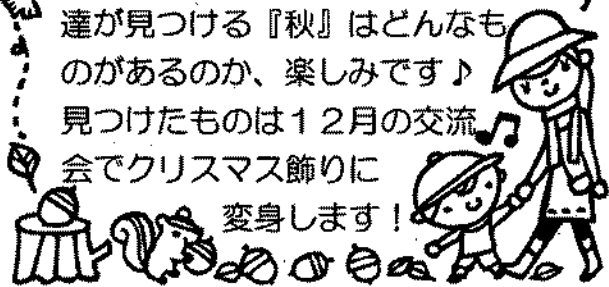 達が見つける『秋』はどんなも
のがあるのか、楽しみです♪
見つけたものは１２月の交流
会でクリスマス飾りに
変身します！